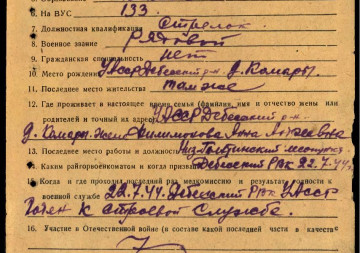 6. На ВУС 133
7. Должностная квалификация Стрелок
8. Военное звание Рядовой
9. Гражданская специальность нет
10. Место рождения УАССР Дебесский р-н д. Комары
11. Последнее место жительства там же
12. Где проживает в настоящее время семья (фамилия, имя и отчество жены или
родителей) и точный их адрес УАССР Дебесский р-н
д. Комары жена Филимонова Анна
13. Последнее место работы и должность
14. Каким райгорвоенкоматом и когда призван Дебесский РВК 22.7.44
15. Когда и где проходил последний раз медкомиссию и результат годности к
военной службе 22.7.44. Дебесский РВК УАССР
Годен к строевой службе.
16. Участие в Отечественной войне (в составе какой последней части в качестве